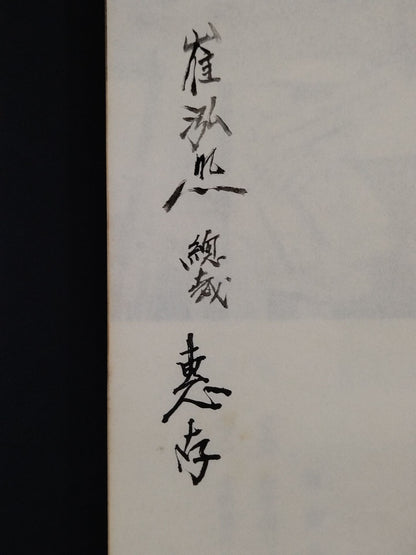 崔泓熙總裁惠存